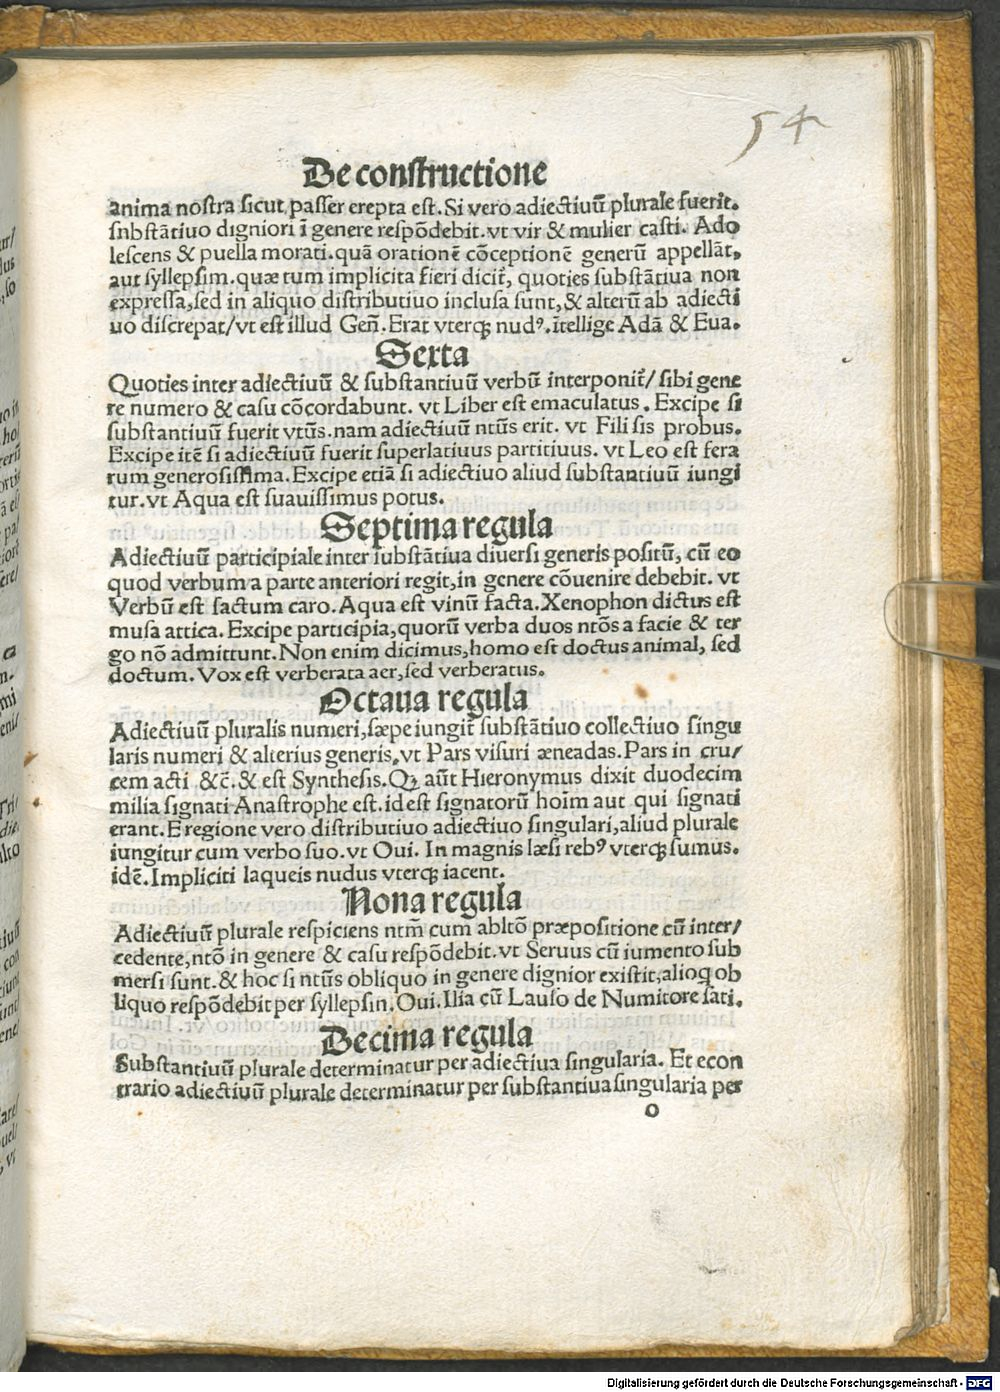 54
De constructione
anima nostra sicut passer erepta est. Si vero adiectiuū plurale fuerit.
snbstātiuo digniori ī genere respōdebit. vt vir & mulier casti. Ado
lescens & puella morati. quā orationē cōceptionē generū appellāt,
aut syllepsim. quæ tum implicita fieri dicit̄, quoties substātiua non
expressa, sed in aliquo distributiuo inclusa sunt, & alterū ab adiecti
uo discrepat/ vt est illud Geñ. Erat vterqꝫ nudꝰ. ītellige Adā & Eua.
Sexta
Quoties inter adiectiuū & substantiuū verbū interponit̄/ sibi gene
re numero & casu cōcordabunt. vt Liber est emaculatus. Excipe si
substantiuū fuerit vtūs. nam adiectiuū ntūs erit. vt Fili sis probus.
Excipe itē si adiectiuū fuerit superlatiuus partitiuus. vt Leo est fera
rum generosissima. Excipe etiā si adiectiuo aliud substantiuū iungi
tur. vt Aqua est suauissimus potus.
Septima regula
Adiectiuū participiale inter substātiua diuersi generis positū, cū eo
quod verbum a parte anteriori regit, in genere cōuenire debebit. vt
Verbū est factum caro. Aqua est vinū facta. Xenophon dictus est
musa attica. Excipe participia, quorū verba duos ntōs a facie & ter
go nō admittunt. Non enim dicimus, homo est doctus animal, sed
doctum. Vox est verberata aer, sed verberatus.
Octaua regula
Adiectiuū pluralis numeri, sæpe iungit̄ substātiuo collectiuo singu
laris numeri & alterius generis, vt Pars visuri æneadas. Pars in cru/
cem acti &c̄. & est Synthesis. Qꝫ aūt Hieronymus dixit duodecim
milia signati Anastrophe est. id est signatorū hoīm aut qui signati
erant. E regione vero distributiuo adiectiuo singulari, aliud plurale
iungitur cum verbo suo. vt Oui. In magnis læsi rebꝰ vterqꝫ sumus.
idē. Impliciti laqueis nudus vterqꝫ iacent.
Nona regula
Adiectiuū plurale respiciens ntm̄ cum abltō præpositione cū inter/
cedente, ntō in genere & casu respōdebit. vt Seruus cū iumento sub
mersi sunt. & hoc si ntūs obliquo in genere dignior existit, alioq ob
liquo respōdebit per syllepsin. Oui. Ilia cū Lauso de Numitore sati.
Decima regula
Substantiuū plurale determinatur per adiectiua singularia. Et econ
trario adiectiuū plurale determinatur per substantiua singularia per
o
Digitalisierung gefördert durch die Deutsche Forschungsgemeinschaft - DFG